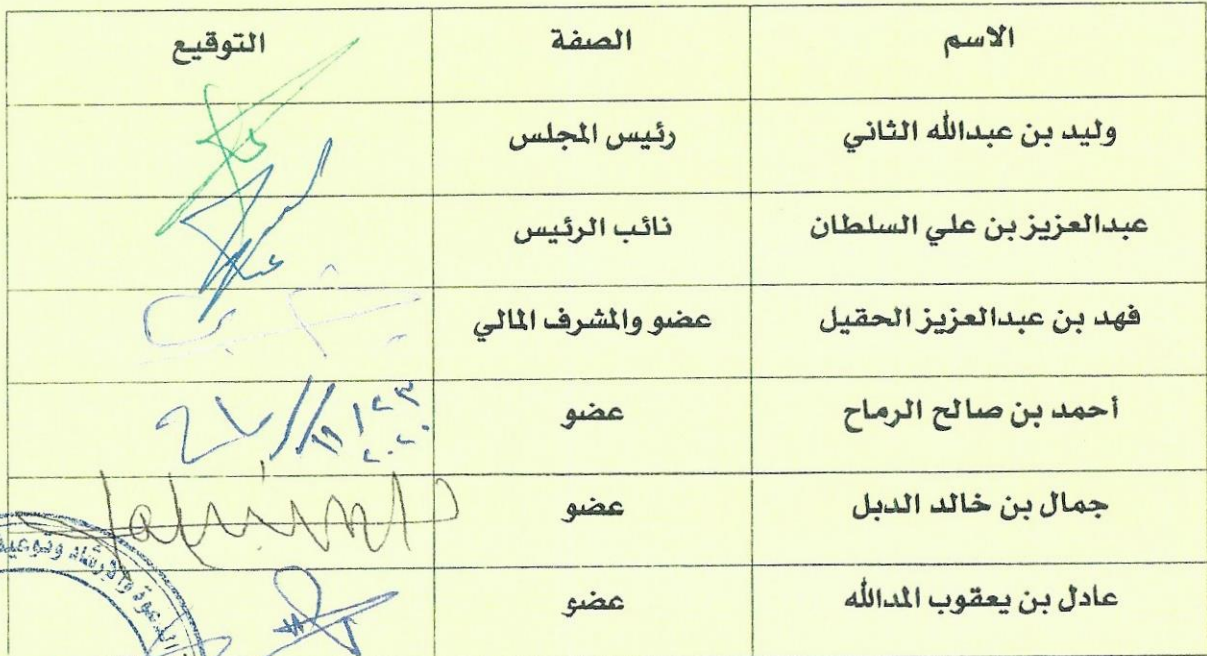 الاسم الصفة التوقيع
وليد بن عبدالله الثاني رئيس المجلس
عبدالعزيز بن علي السلطان نائب الرئيس
فهد بن عبدالعزيز الحقيل عضو والمشرف المالي
أحمد بن صالح الرماح عضو
جمال بن خالد الدبل عضو
عادل بن يعقوب المدالله عضو
الدعوة والإرشاد وتوعية